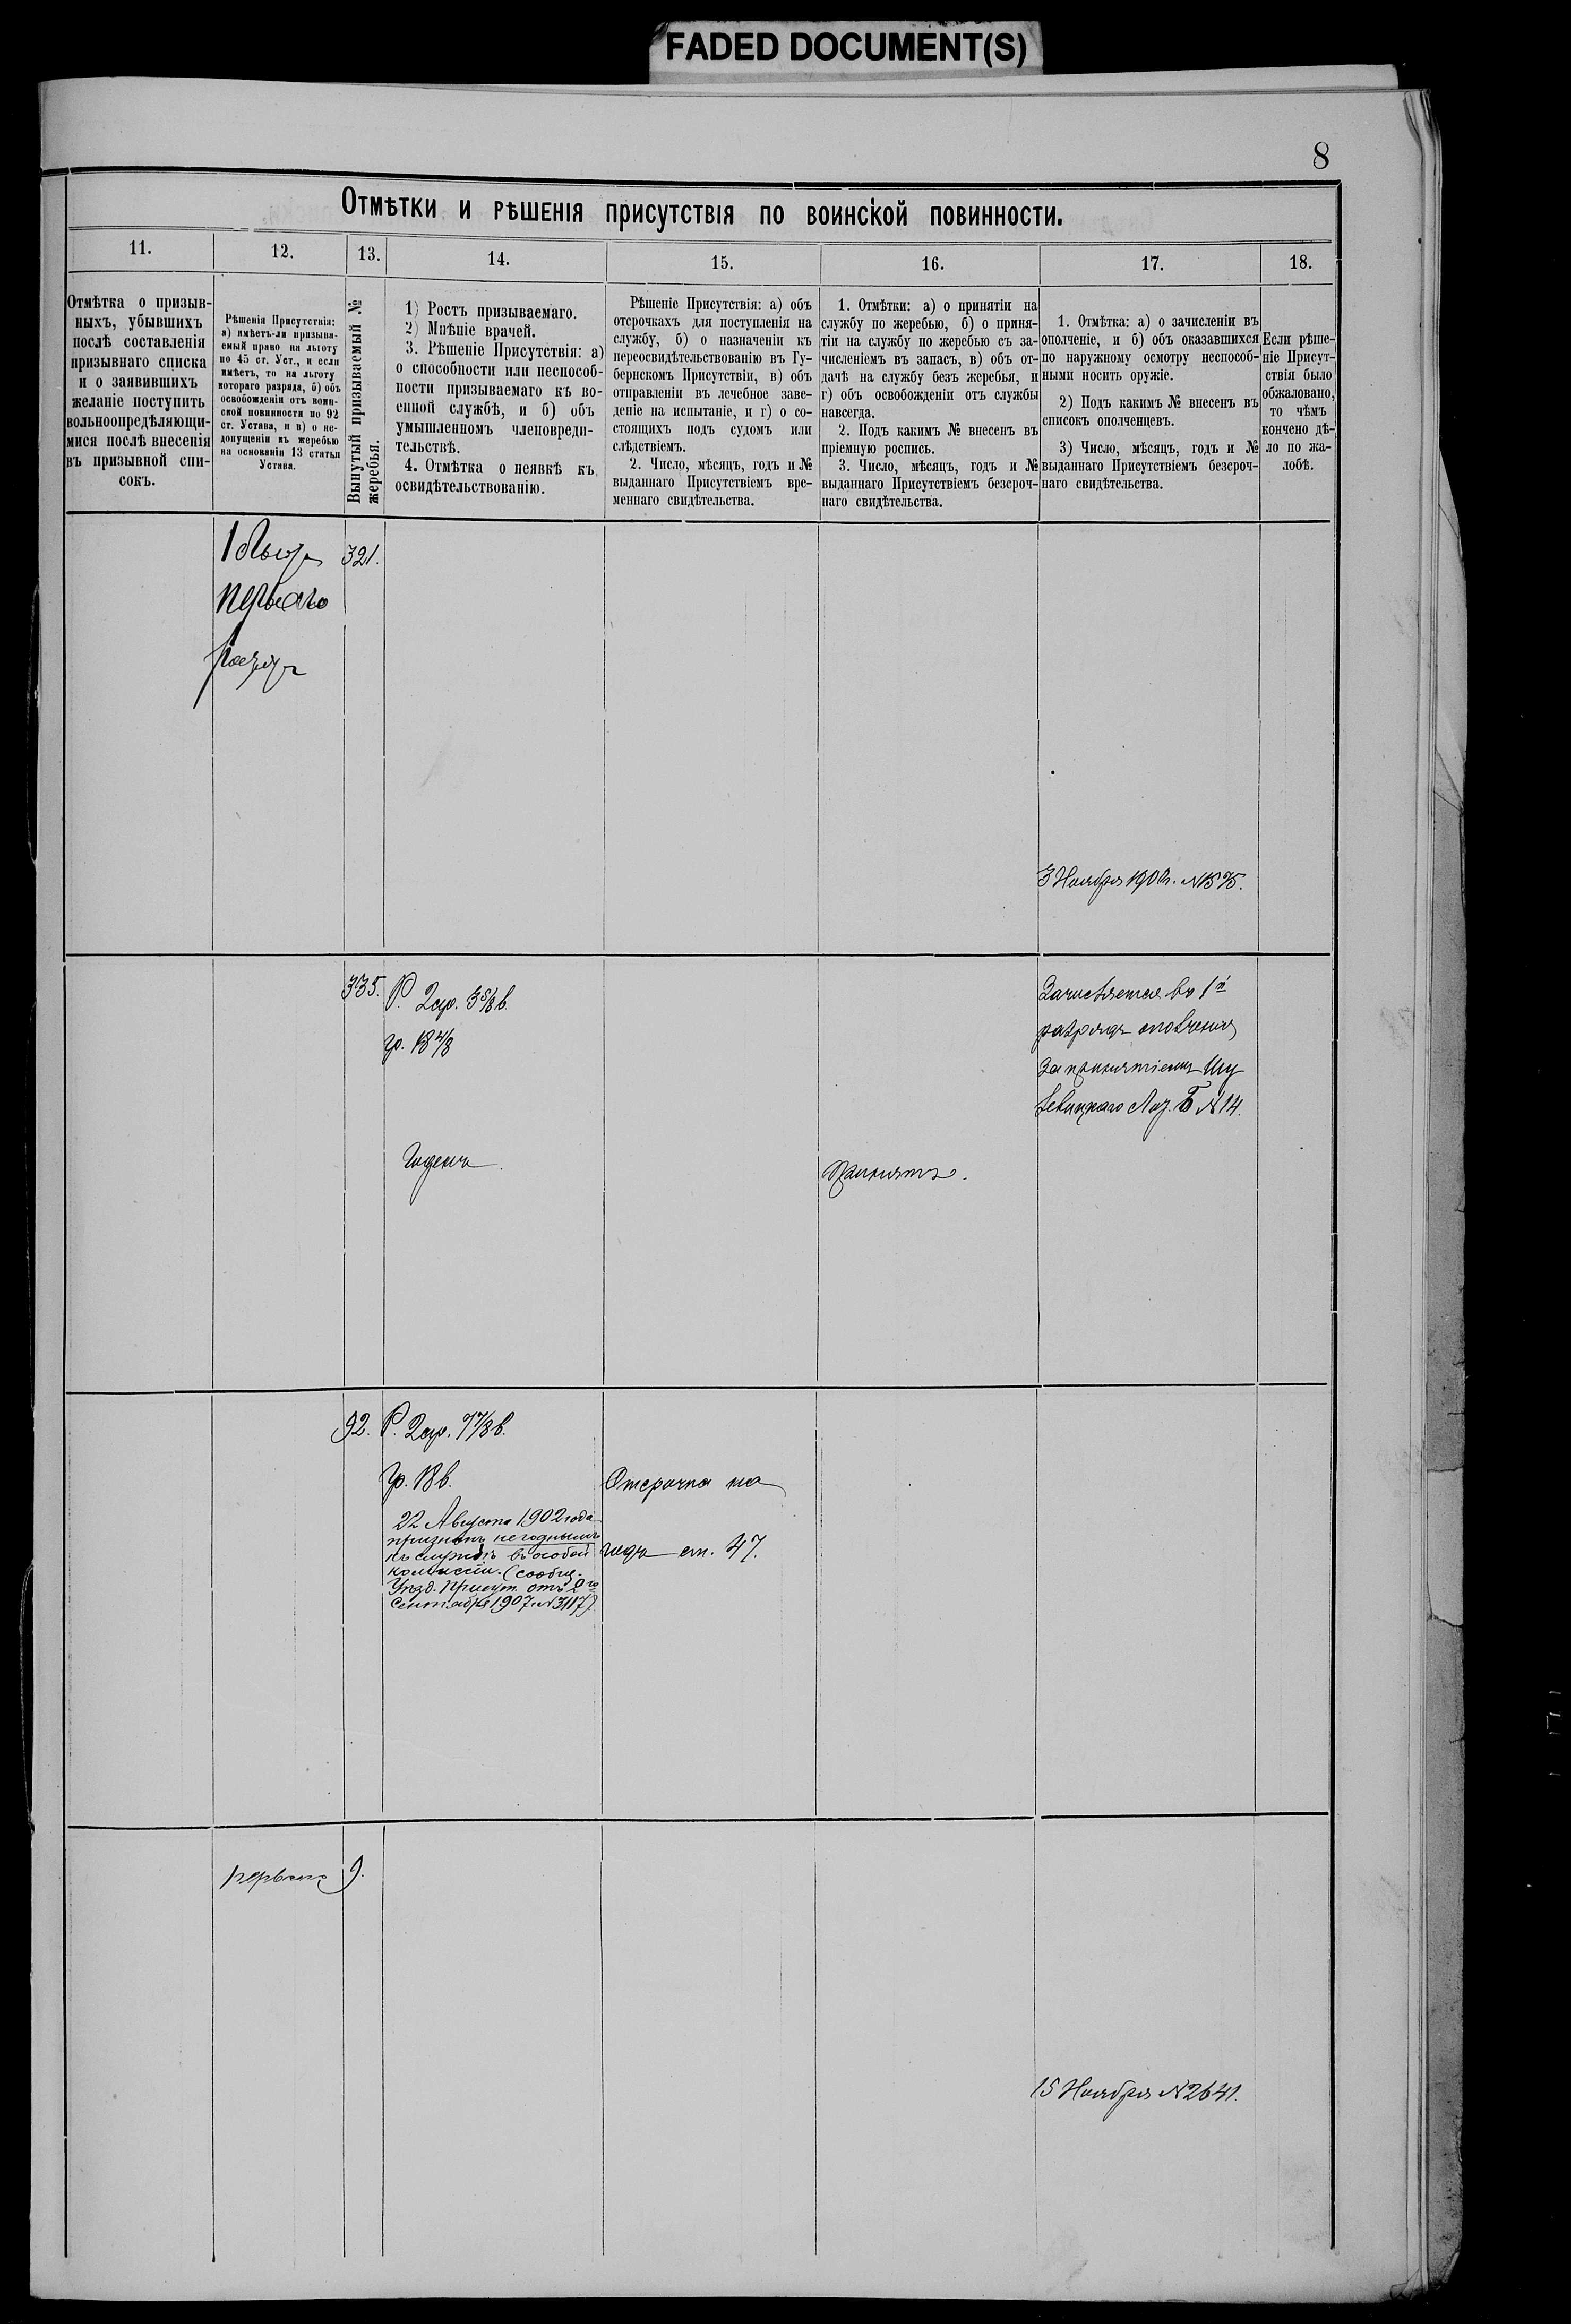 FADED DOCUMENT(S)
8
Отмѣтки и рѣшенія присутствія по воинской повинности.
11.
12.
13.
14.
15.
16.
17.
18.
Отмѣтка о призыв-
ныхъ, убывшихъ
послѣ составленія
призывнаго списка
и о заявившихъ
желаніе поступить
вольноопредѣляющи-
мися послѣ внесенія
въ призывной спи-
сокъ.
Рѣшенія Присутствія:
а) имѣетъ-ли призыва-
емый право на льготу
по 45 ст. Уст., и если
имѣетъ, то на льготу
котораго разряда, б) объ
освобожденіи отъ воин-
ской повинности по 92
ст. Устава, и в) о не-
допущеніи къ жеребью
на основаніи 13 статьи
Устава.
Вынутый призываемый №
жеребья.
1) Ростъ призываемаго.
2) Мнѣніе врачей.
3. Рѣшеніе Присутствія: а)
о способности или неспособ-
ности призываемаго къ во-
енной службѣ, и б) объ
умышленномъ членовреди-
тельствѣ.
4. Отмѣтка о неявкѣ къ
освидѣтельствованію.
Рѣшеніе Присутствія: а) объ
отсрочкахъ для поступленія на
службу, б) о назначеніи къ
переосвидѣтельствованію въ Гу-
бернскомъ Присутствіи, в) объ
отправленіи въ лечебное заве-
деніе на испытаніе, и г) о со-
стоящихъ подъ судомъ или
слѣдствіемъ.
2. Число, мѣсяцъ, годъ и №
выданнаго Присутствіемъ вре-
меннаго свидѣтельства.
1. Отмѣтки: а) о принятіи на
службу по жеребью, б) о приня-
тіи на службу по жеребью съ за-
численіемъ въ запасъ, в) объ от-
дачѣ на службу безъ жеребья, и
г) объ освобожденіи отъ службы
навсегда.
2. Подъ какимъ № внесенъ въ
пріемную роспись.
3. Число, мѣсяцъ, годъ и №
выданнаго Присутствіемъ безсроч-
наго свидѣтельства.
1. Отмѣтка: а) о зачисленіи въ
ополченіе, и б) объ оказавшихся
по наружному осмотру неспособ-
ными носить оружіе.
2) Подъ какимъ № внесенъ въ
списокъ ополченцевъ.
3) Число, мѣсяцъ, годъ и №
выданнаго Присутствіемъ безсроч-
наго свидѣтельства.
Если рѣше-
ніе Присут-
ствія было
обжаловано,
то чѣмъ
кончено дѣ-
ло по жа-
лобѣ.
321.
перваго
разряд
3 Ноября
335.
Р. 2 ар. 3 5/8 в.
гр. 18 4/8
Годенъ
Принятъ.
Зачисляется въ 1й
разрядъ ополченія
за принятіемъ
№ 14.
92.
Р. 2 ар. 7 7/8 в.
гр. 18 в.
22 Августа 1902 года
признанъ негоднымъ
къ службѣ въ особой
комиссіи. (сообщ.
Уѣзд. Присут. отъ 2го
Сентября 1907 № 3117)
Отсрочка на
годъ ст. 47.
перваго
9.
15 Ноября № 2641.